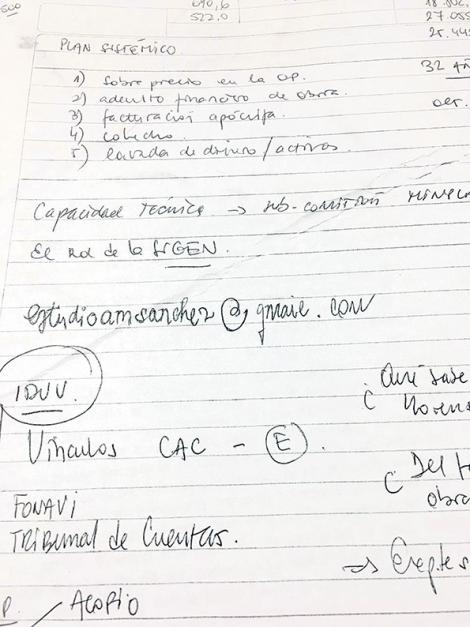 500
010,6
522.0
18.002.
27.055
25.445
PLAN SISTÉMICO
32
1) Sobreprecio en la OP.
2) adelanto financiero de obra.
3) facturación apócrifa.
4) cohecho
5) lavado de dinero / activos.
Capacidad Técnica → sub-comisión
El rol de la SIGEN.
estudioamsanchez@gmail.com
IDUV.
¿Qué sabe
Vínculos CAC - E.
FONAVI
obra
TRIBUNAL de Cuentas.
P. / Acopio